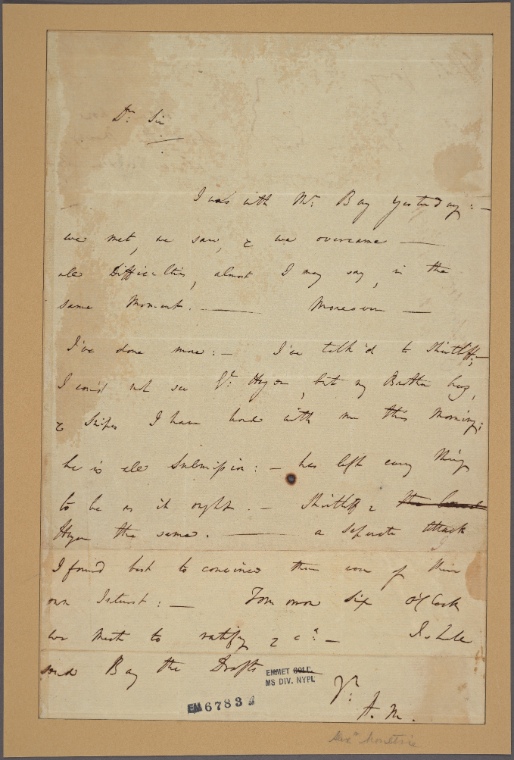 Dr. Sir
I was with Mr. Bay yesterday: —
we met, we saw, & we overcame —
all Difficulties, almost I may say, in the
same Moment. — Moreover —
I've done more: — I've talk'd to
I cou'd not see , but my Brother has,
& I have had with me this Morning:
he is all Submission: — has left every thing
to be as it ought. — &
the same. — a seperate attack
I found best to convince them was of their
own Interest: — Tomorrow Six o'Clock
we meet to ratify & ca. — I shall
send Bay the Drafts
Yr.
A. M.
EMMET COLL.
MS DIV. NYPL
EM 6783